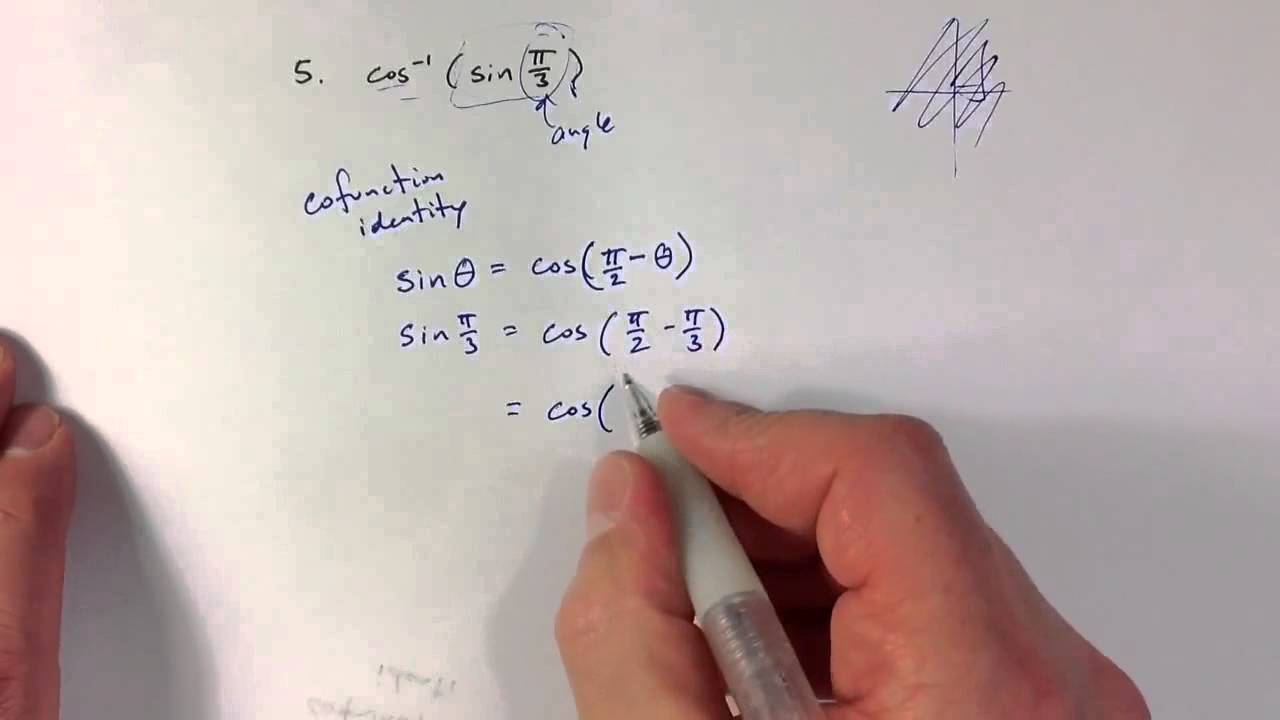 5. cos⁻¹ (sin(π/3))
angle
cofunction
identity
sinθ = cos(π/2 - θ)
sin π/3 = cos(π/2 - π/3)
= cos(